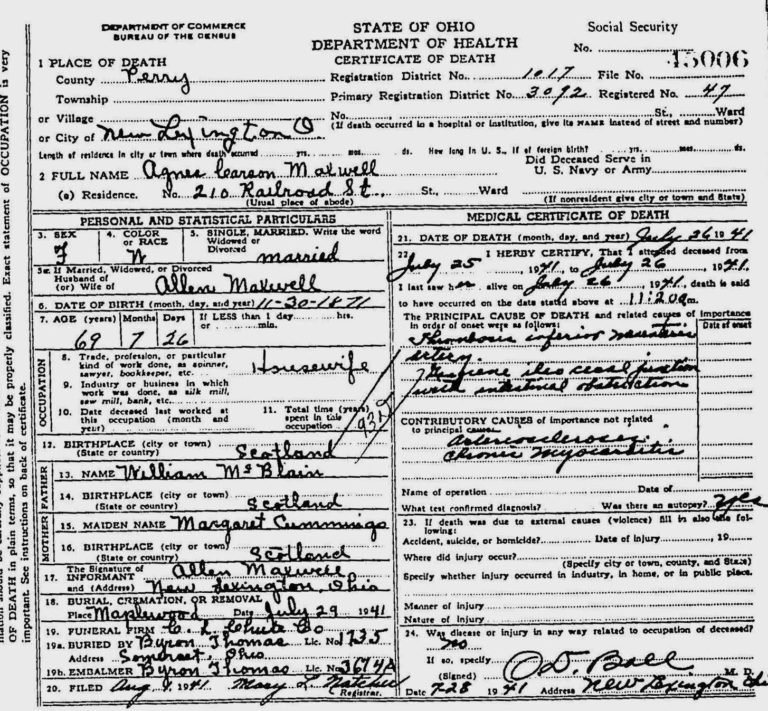 DEPARTMENT OF COMMERCE
BUREAU OF THE CENSUS
STATE OF OHIO
DEPARTMENT OF HEALTH
CERTIFICATE OF DEATH
Social Security
No.
45006
1 PLACE OF DEATH
County Perry
Registration District No. 1017 File No.
Township
Primary Registration District No. 3092 Registered No. 47
or Village
No. St., Ward
or City of New Lexington O
(If death occurred in a hospital or institution, give its NAME instead of street and number)
Length of residence in city or town where death occurred yrs. mos. ds. How long in U. S., if of foreign birth? yrs. mos. ds.
2 FULL NAME Agnes Carson Maxwell
Did Deceased Serve in
U. S. Navy or Army
(a) Residence. No. 210 Railroad St., St., Ward
(Usual place of abode) (If nonresident give city or town and State)
PERSONAL AND STATISTICAL PARTICULARS
3. SEX
F
4. COLOR
or RACE
W
5. SINGLE, MARRIED. Write the word
Widowed or
Divorced married
5a If Married, Widowed, or Divorced
Husband of
(or) Wife of Allen Maxwell
6. DATE OF BIRTH (month, day, and year) 11-30-1871
7. AGE (years) Months Days If LESS than 1 day hrs.
or min.
69 7 26
OCCUPATION
8. Trade, profession, or particular
kind of work done, as spinner,
sawyer, bookkeeper, etc. Housewife
9. Industry or business in which
work was done, as silk mill,
saw mill, bank, etc.
10. Date deceased last worked at
this occupation (month and
year)
11. Total time (years)
spent in this
occupation
12. BIRTHPLACE (city or town)
(State or country) Scotland
FATHER
13. NAME William McBlain
14. BIRTHPLACE (city or town)
(State or country) Scotland
MOTHER
15. MAIDEN NAME Margaret Cummings
16. BIRTHPLACE (city or town)
(State or country) Scotland
17. The Signature of
INFORMANT Allen Maxwell
and (Address) New Lexington, Ohio
18. BURIAL, CREMATION, OR REMOVAL
Place Maplewood Date July 29 1941
19. FUNERAL FIRM C. L. Chute Co
19a. BURIED BY Byron Thomas Lic. No. 1735
Address Somerset, Ohio
19b. EMBALMER Byron Thomas Lic. No. 3674A
20. FILED Aug 9 1941 Mary L.
Registrar.
MEDICAL CERTIFICATE OF DEATH
21. DATE OF DEATH (month, day, and year) July 26 1941
22. I HERBY CERTIFY, That I attended deceased from
July 25, 1941, to July 26, 1941.
I last saw her alive on July 26, 1941, death is said
to have occurred on the date stated above at 11:20 am.
The PRINCIPAL CAUSE OF DEATH and related causes of importance
in order of onset were as follows:
Date of onset
Thrombosis inferior mesenteric
artery.
Gangrene ileo cecal junction
with intestinal obstruction
CONTRIBUTORY CAUSES of importance not related
to principal cause:
Arteriosclerosis
chronic myocarditis
Name of operation Date of
What test confirmed diagnosis? Was there an autopsy? yes
23. If death was due to external causes (violence) fill in also the fol-
lowing:
Accident, suicide, or homicide? Date of injury , 19
Where did injury occur?
(Specify city or town, county, and State)
Specify whether injury occurred in industry, in home, or in public place.
Manner of injury
Nature of injury
24. Was disease or injury in any way related to occupation of deceased?
no
If so, specify
(Signed) O D. Ball M. D.
Date 7-28 1941 Address New Lexington
OF DEATH in plain terms, so that it may be properly classified. Exact statement of OCCUPATION is very
important. See instructions on back of certificate.